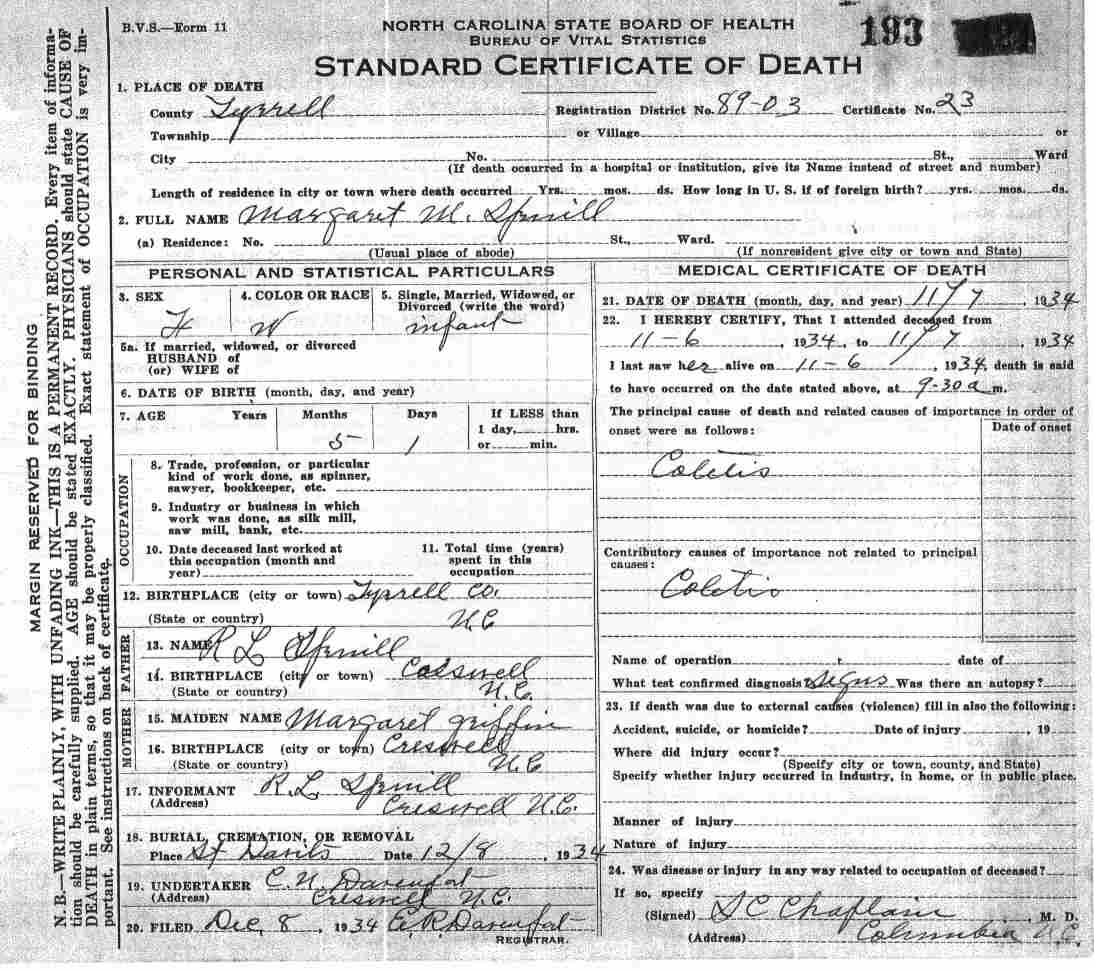 B.V.S.—Form 11
NORTH CAROLINA STATE BOARD OF HEALTH
BUREAU OF VITAL STATISTICS
193
STANDARD CERTIFICATE OF DEATH
MARGIN RESERVED FOR BINDING
N. B.—WRITE PLAINLY, WITH UNFADING INK—THIS IS A PERMANENT RECORD. Every item of informa-
tion should be carefully supplied. AGE should be stated EXACTLY. PHYSICIANS should state CAUSE OF
DEATH in plain terms, so that it may be properly classified. Exact statement of OCCUPATION is very im-
portant. See instructions on back of certificate.
1. PLACE OF DEATH
County Tyrrell Registration District No. 89-03 Certificate No. 23
Township or Village or
City No. St., Ward
(If death occurred in a hospital or institution, give its Name instead of street and number)
Length of residence in city or town where death occurred Yrs. mos. ds. How long in U. S. if of foreign birth? yrs. mos. ds.
2. FULL NAME Margaret M. Spruill
(a) Residence: No. St., Ward.
(Usual place of abode) (If nonresident give city or town and State)
PERSONAL AND STATISTICAL PARTICULARS
3. SEX 4. COLOR OR RACE 5. Single, Married, Widowed, or
Divorced (write the word)
F W infant
5a. If married, widowed, or divorced
HUSBAND of
(or) WIFE of
6. DATE OF BIRTH (month, day, and year)
7. AGE Years Months Days If LESS than
1 day, hrs.
5 1 or min.
OCCUPATION
8. Trade, profession, or particular
kind of work done, as spinner,
sawyer, bookkeeper, etc.
9. Industry or business in which
work was done, as silk mill,
saw mill, bank, etc.
10. Date deceased last worked at
this occupation (month and
year)
11. Total time (years)
spent in this
occupation
12. BIRTHPLACE (city or town) Tyrrell Co.
(State or country) N.C
FATHER
13. NAME R L Spruill
14. BIRTHPLACE (city or town) Creswell
(State or country) N.C.
MOTHER
15. MAIDEN NAME Margaret Griffin
16. BIRTHPLACE (city or town) Creswell
(State or country) N.C
17. INFORMANT R.L. Spruill
(Address) Creswell N.C.
18. BURIAL, CREMATION, OR REMOVAL
Place St Davids Date 12/8, 1934
19. UNDERTAKER C.N. Davenport
(Address) Creswell N.C.
20. FILED Dec, 8, 1934 E.R. Davenport
REGISTRAR.
MEDICAL CERTIFICATE OF DEATH
21. DATE OF DEATH (month, day, and year) 11/7, 1934
22. I HEREBY CERTIFY, That I attended deceased from
11-6, 1934, to 11/7, 1934
I last saw her alive on 11-6, 1934, death is said
to have occurred on the date stated above, at 9-30 a m.
The principal cause of death and related causes of importance in order of
onset were as follows: Date of onset
Coletis
Contributory causes of importance not related to principal
causes:
Coletis
Name of operation date of
What test confirmed diagnosis? Signs Was there an autopsy?
23. If death was due to external causes (violence) fill in also the following:
Accident, suicide, or homicide? Date of injury , 19
Where did injury occur?
(Specify city or town, county, and State)
Specify whether injury occurred in industry, in home, or in public place.
Manner of injury
Nature of injury
24. Was disease or injury in any way related to occupation of deceased?
If so, specify
(Signed) S C Chaplain, M. D.
(Address) Columbia N.C.